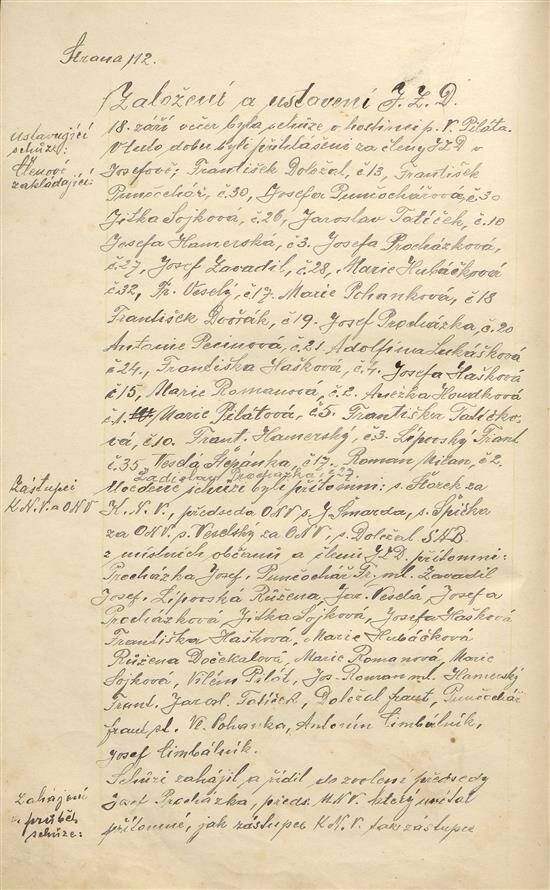 Strana 112.
Založení a ustavení J.Z.D.
ustavující
schůze:
Členové
zakládající:
18. září večer byla schůze v hostinci p. V. Piláta.
V tuto dobu byli přihlášeni za členy JZD v
Josefově; František Doležal, č.13, František
Punčochář, č.30, Josefa Punčochářová, č.30
Jitka Sojková, č.26, Jaroslav Tatíček, č.10
Josefa Hamerská, č.3. Josefa Procházková,
č.27, Josef Zavadil, č.28, Marie Hubáčková
č.32, Fr. Veselý, č.17. Marie Pchanková, č.18
František Dvořák, č.19. Josef Procházka, č.20
Antonie Pecinová, č.21. Adolfina Lukášková
č.24., Františka Hašková, č.4. Josefa Hašková
č.15, Marie Romanová, č.2. Anežka Nováková
č.1. Marie Pilátová, č.5. Františka Tatíčko-
vá, č.10. Frant. Hamerský, č.3. Lipovský Frant
č.35. Veselá Štěpánka, č.17. Roman Milan, č.2.
Ladislav Procházka č.27
Zástupci
K.N.V. a ONV
Uvedené schůzi byli přítomni: s. Stárek za
K.N.V., předseda ONV s. J. Šmarda, s. Špička
za ONV, s. Veselský za ONV, s. Doležal SNB
z místních občanů a členů JZD přítomni:
Procházka Josef, Punčochář Fr. ml. Zavadil
Josef, Lipovská Růžena, Jar. Veselá, Josefa
Procházková, Jitka Sojková, Josefa Hašková
Františka Hašková, Marie Hubáčková
Růžena Dočekalová, Marie Romanová, Marie
Sojková, Vilém Pilát, Jos. Roman ml. Hamerský
Frant, Jarosl. Tatíček, Doležal Frant, Punčochář
Frant st. Vl. Antonín Cimbálník,
Josef Cimbálník.
Zahájení
a průběh
schůze:
Schůzi zahájil a řídil do zvolení předsedy
Josef Procházka, předs. MNV. který uvítal
přítomné, jak zástupce K.N.V. tak zástupce